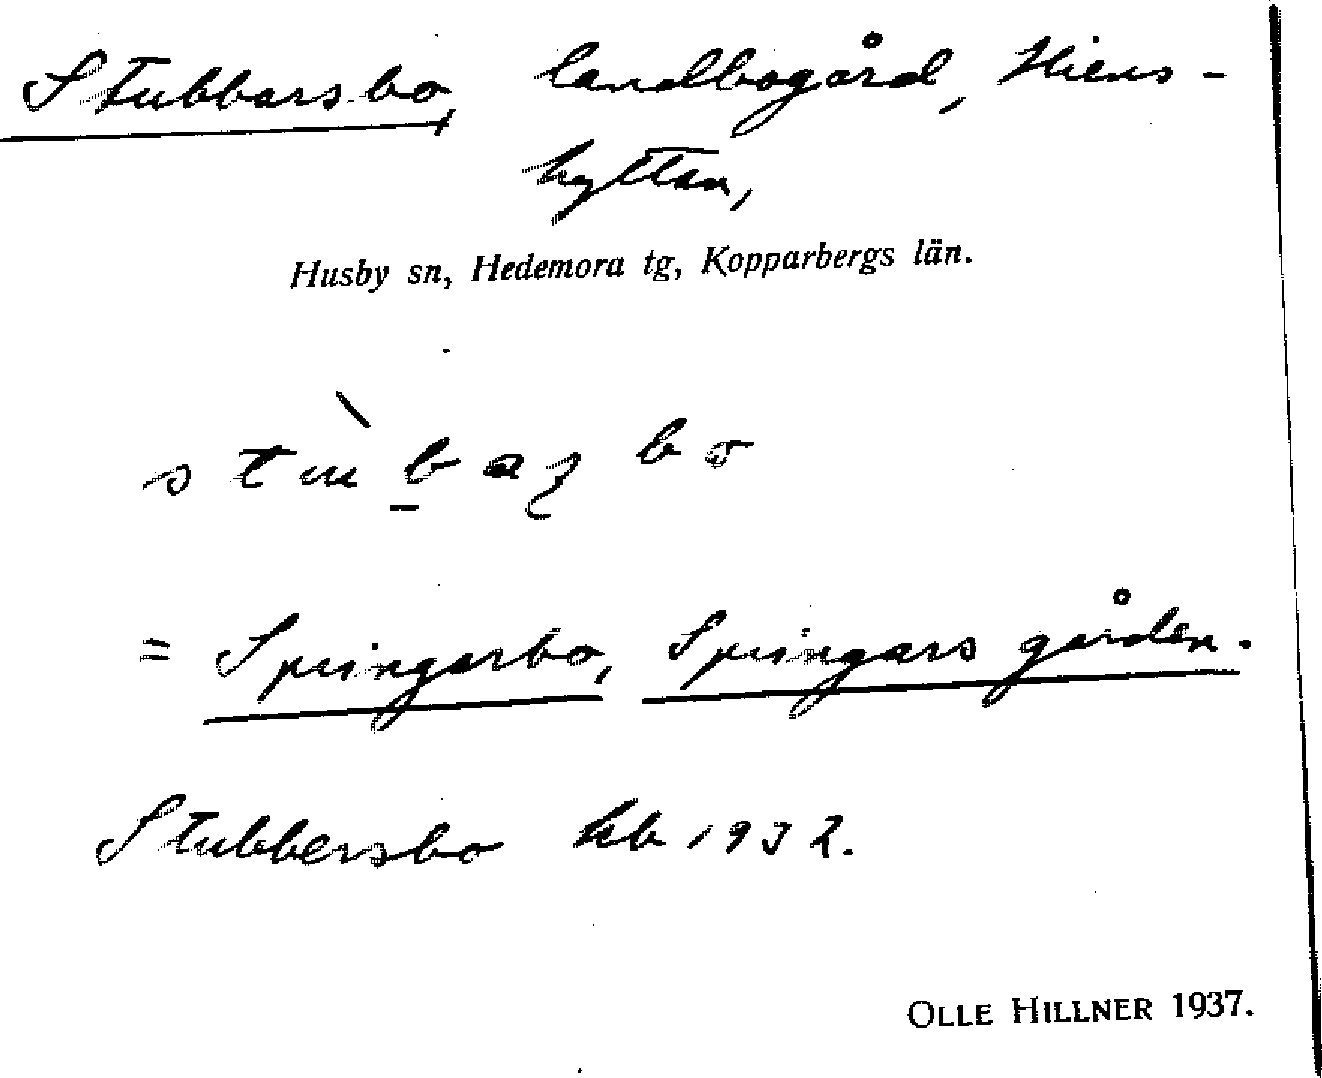 Stubbarsbo, landbogård, Hiens-
hyttan,
Husby sn, Hedemora tg, Kopparbergs län.
= Springarbo, Springars gården.
Stubbersbo kb 1932.
OLLE HILLNER 1937.